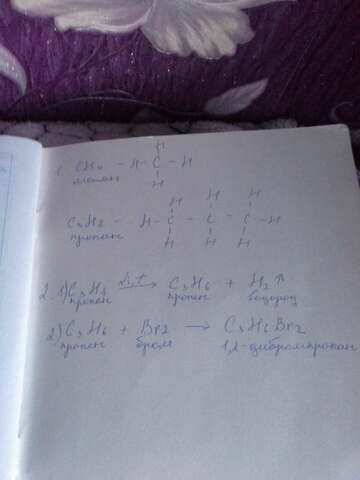 H
1. CH₄ - H - C - H
метан
H
H H H
C₃H₈ - H - C - C - C - H
пропан
H H H
2. 1) C₃H₆ Ni, t → C₃H₆ + H₂↑
пропан пропен водород
2) C₃H₆ + Br₂ → C₃H₆Br₂
пропен бром 1,2-дибромпропан